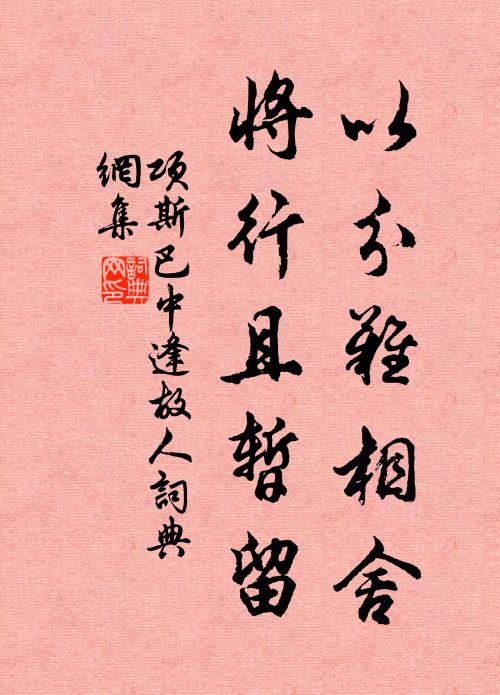 以分難相舍
將行且暫留
項斯巴中逢故人詞典
網集
詞典
網印